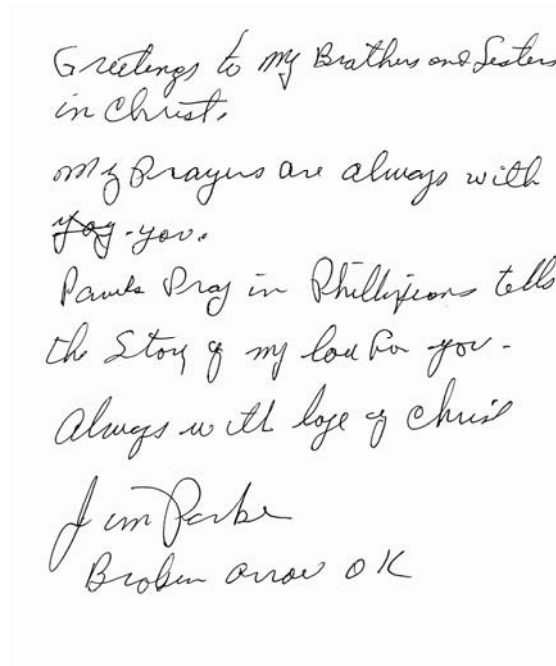 Greetings to my Brothers and Sisters
in Christ.
My Prayers are always with
you.
Pauls Pray in Phillipians tells
the Story of my love for you.
Always with love of Christ
Jim Parke
Broken Arrow OK